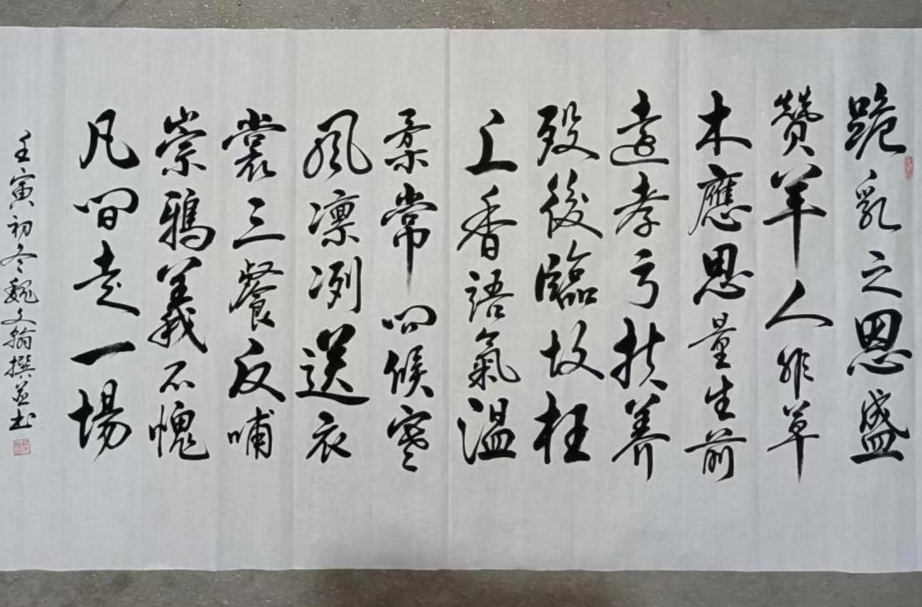 跪乳之恩盛
贊羊人非草
木應恩量生前
孝亏扶養
殁後臨故枉
上香語氣温
柔常问候寒
風凛冽送衣
裳三餐反哺
崇鴉義不愧
凡间走一場
壬寅初冬魏文翰撰並书